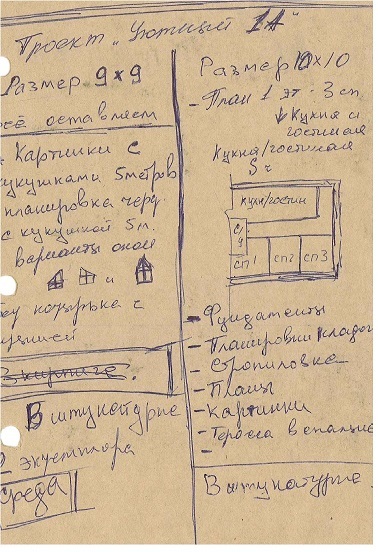 Проект "Уютный 1А"
Размер 9х9
всё оставляем
Картинки с
кукушками 5метров
планировка черд.
с кукушкой 5м.
варианты окон
и
козырька с
крышей
В штукатурке
экустпора
среда
Размер 10х10
- План 1 эт - 3 сп
Кухня и
гостиная
Кухня/гостиная
Кухн/гостин
С/у
сп1 сп2 сп3
- Фундаменты
- Планировки кладов
- Стропиловка
- Планы
- Картинки
- Терасса в спальне
-
В штукатурке